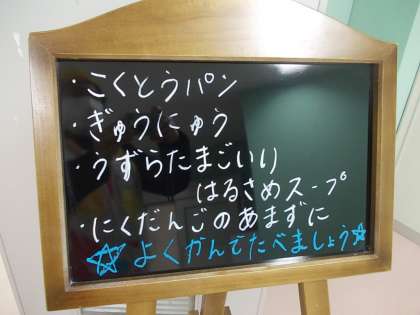 ・こくとうパン
・ぎゅうにゅう
・うずらたまごいり
はるさめスープ
・にくだんごのあまずに
☆よくかんでたべましょう☆